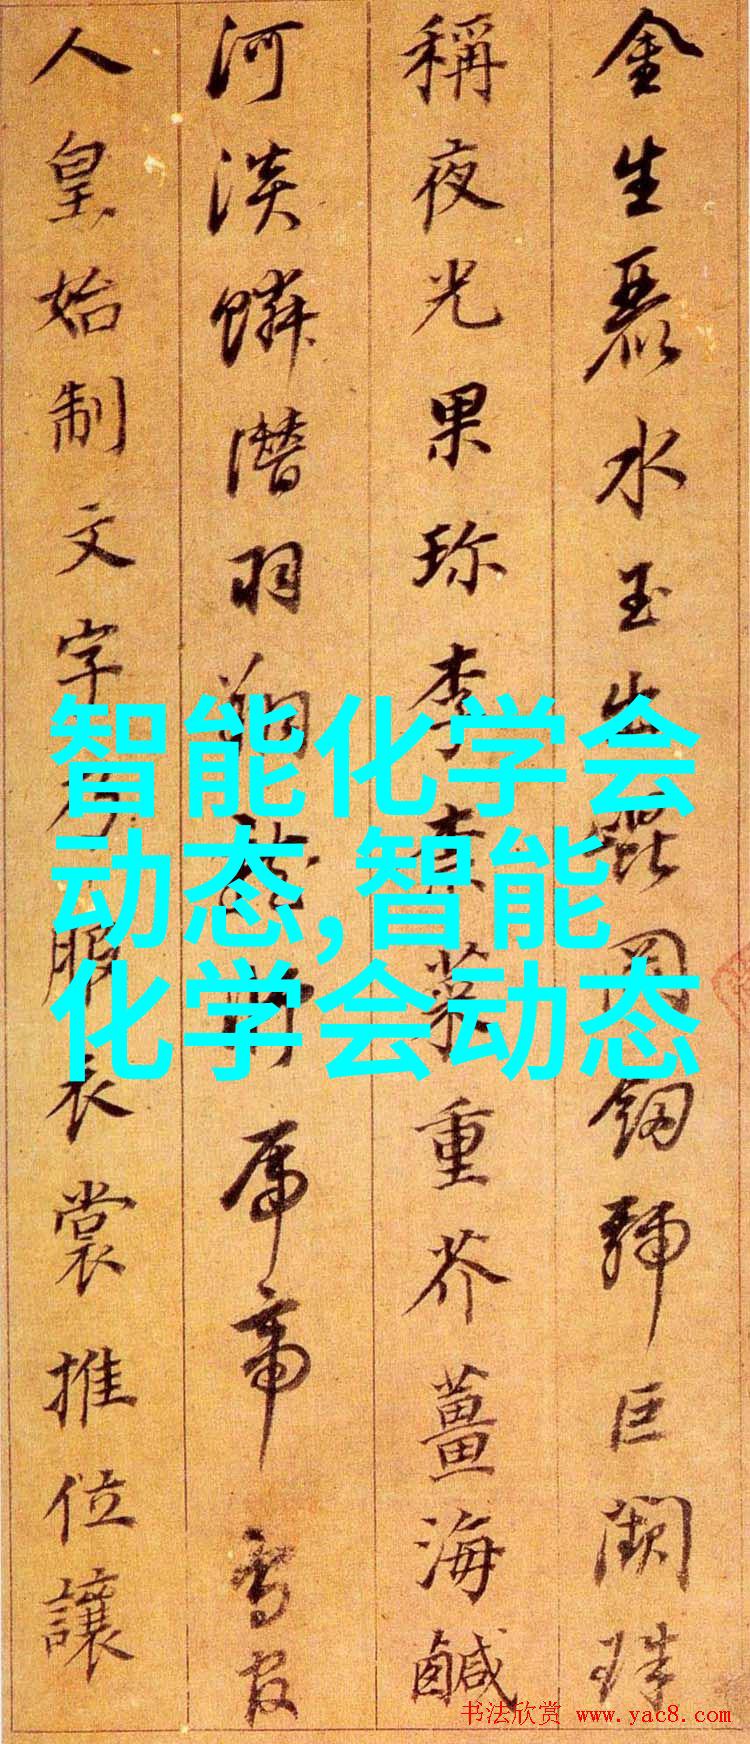 金生麗水玉出崑岡劒號巨闕珠
稱夜光果珍李柰菜重芥薑海鹹
河淡鱗潛羽翔龍帝鳥官
人皇始制文字乃服衣裳推位讓
智能化学会
动态,智能
化学会动态
书法欣赏 www.yac8.com